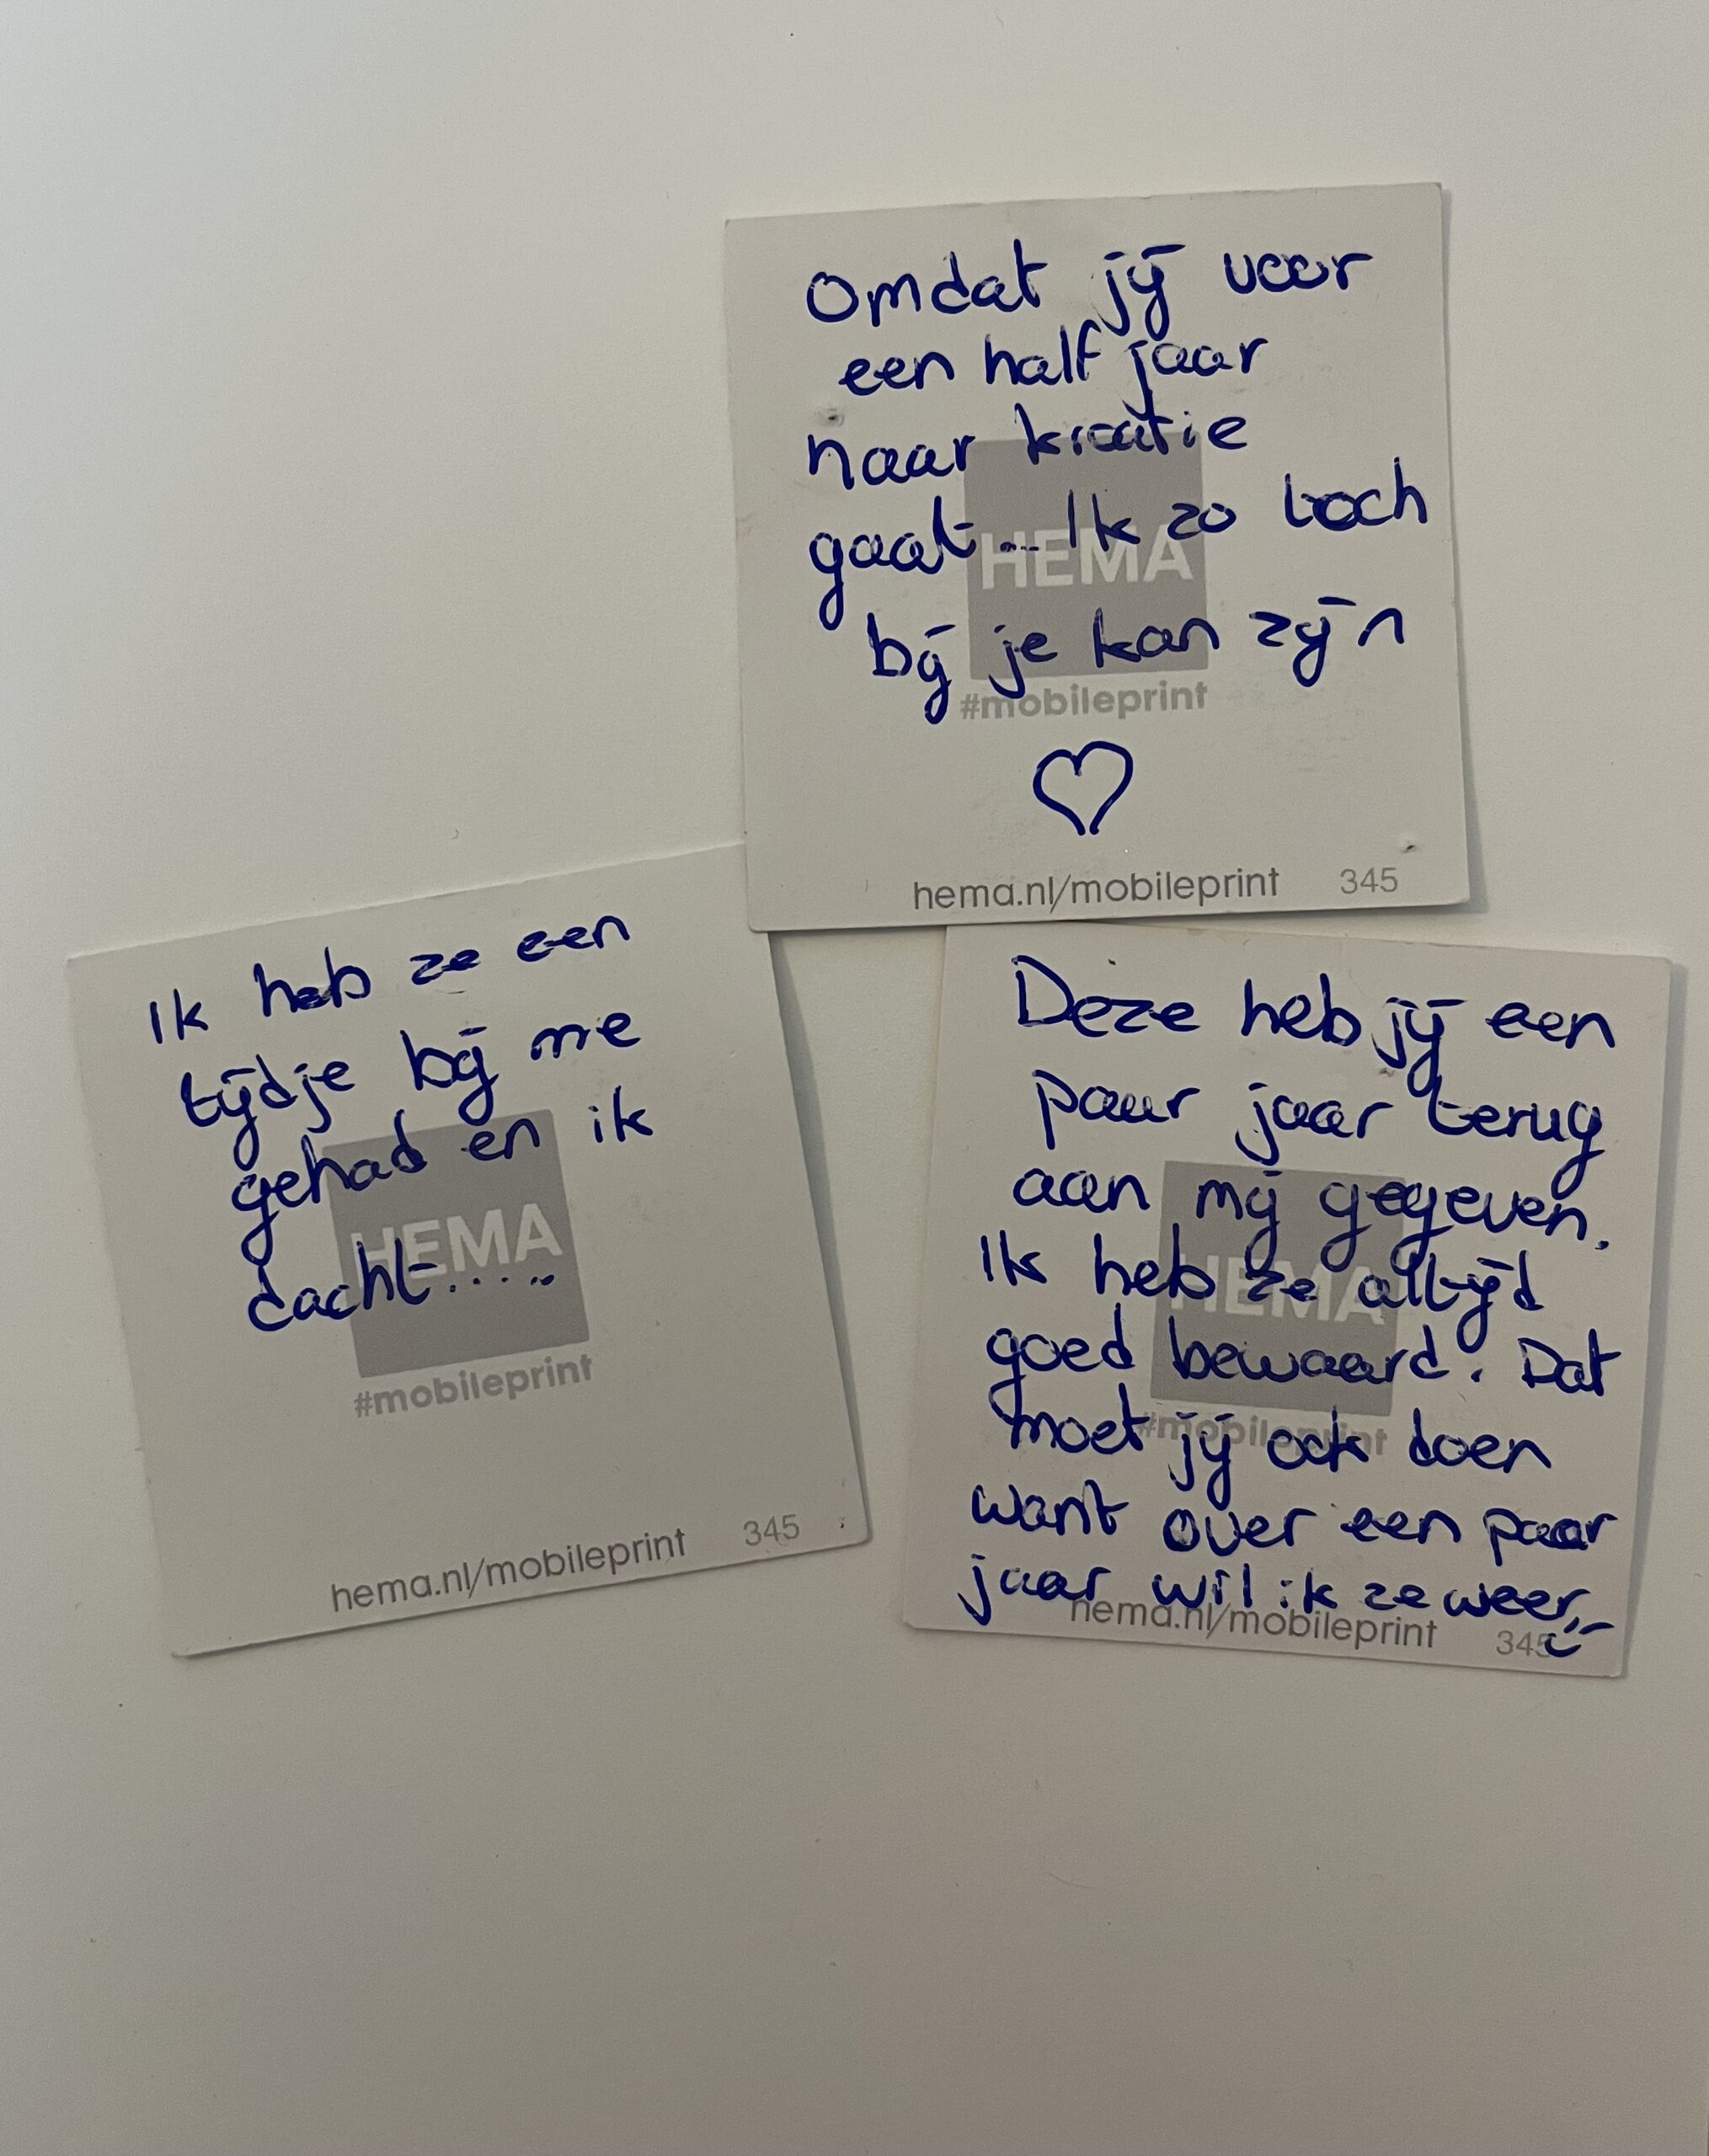 Omdat jij voor
een half jaar
naar kroatie
gaat... Ik zo toch
bij je kan zijn
HEMA
#mobileprint
hema.nl/mobileprint 345
Ik heb ze een
tijdje bij me
gehad en ik
dacht......
HEMA
#mobileprint
hema.nl/mobileprint 345
Deze heb jij een
paar jaar terug
aan mij gegeven.
Ik heb ze altijd
goed bewaard. Dat
moet jij ook doen
want over een paar
jaar wil ik ze weer
HEMA
#mobileprint
hema.nl/mobileprint 345